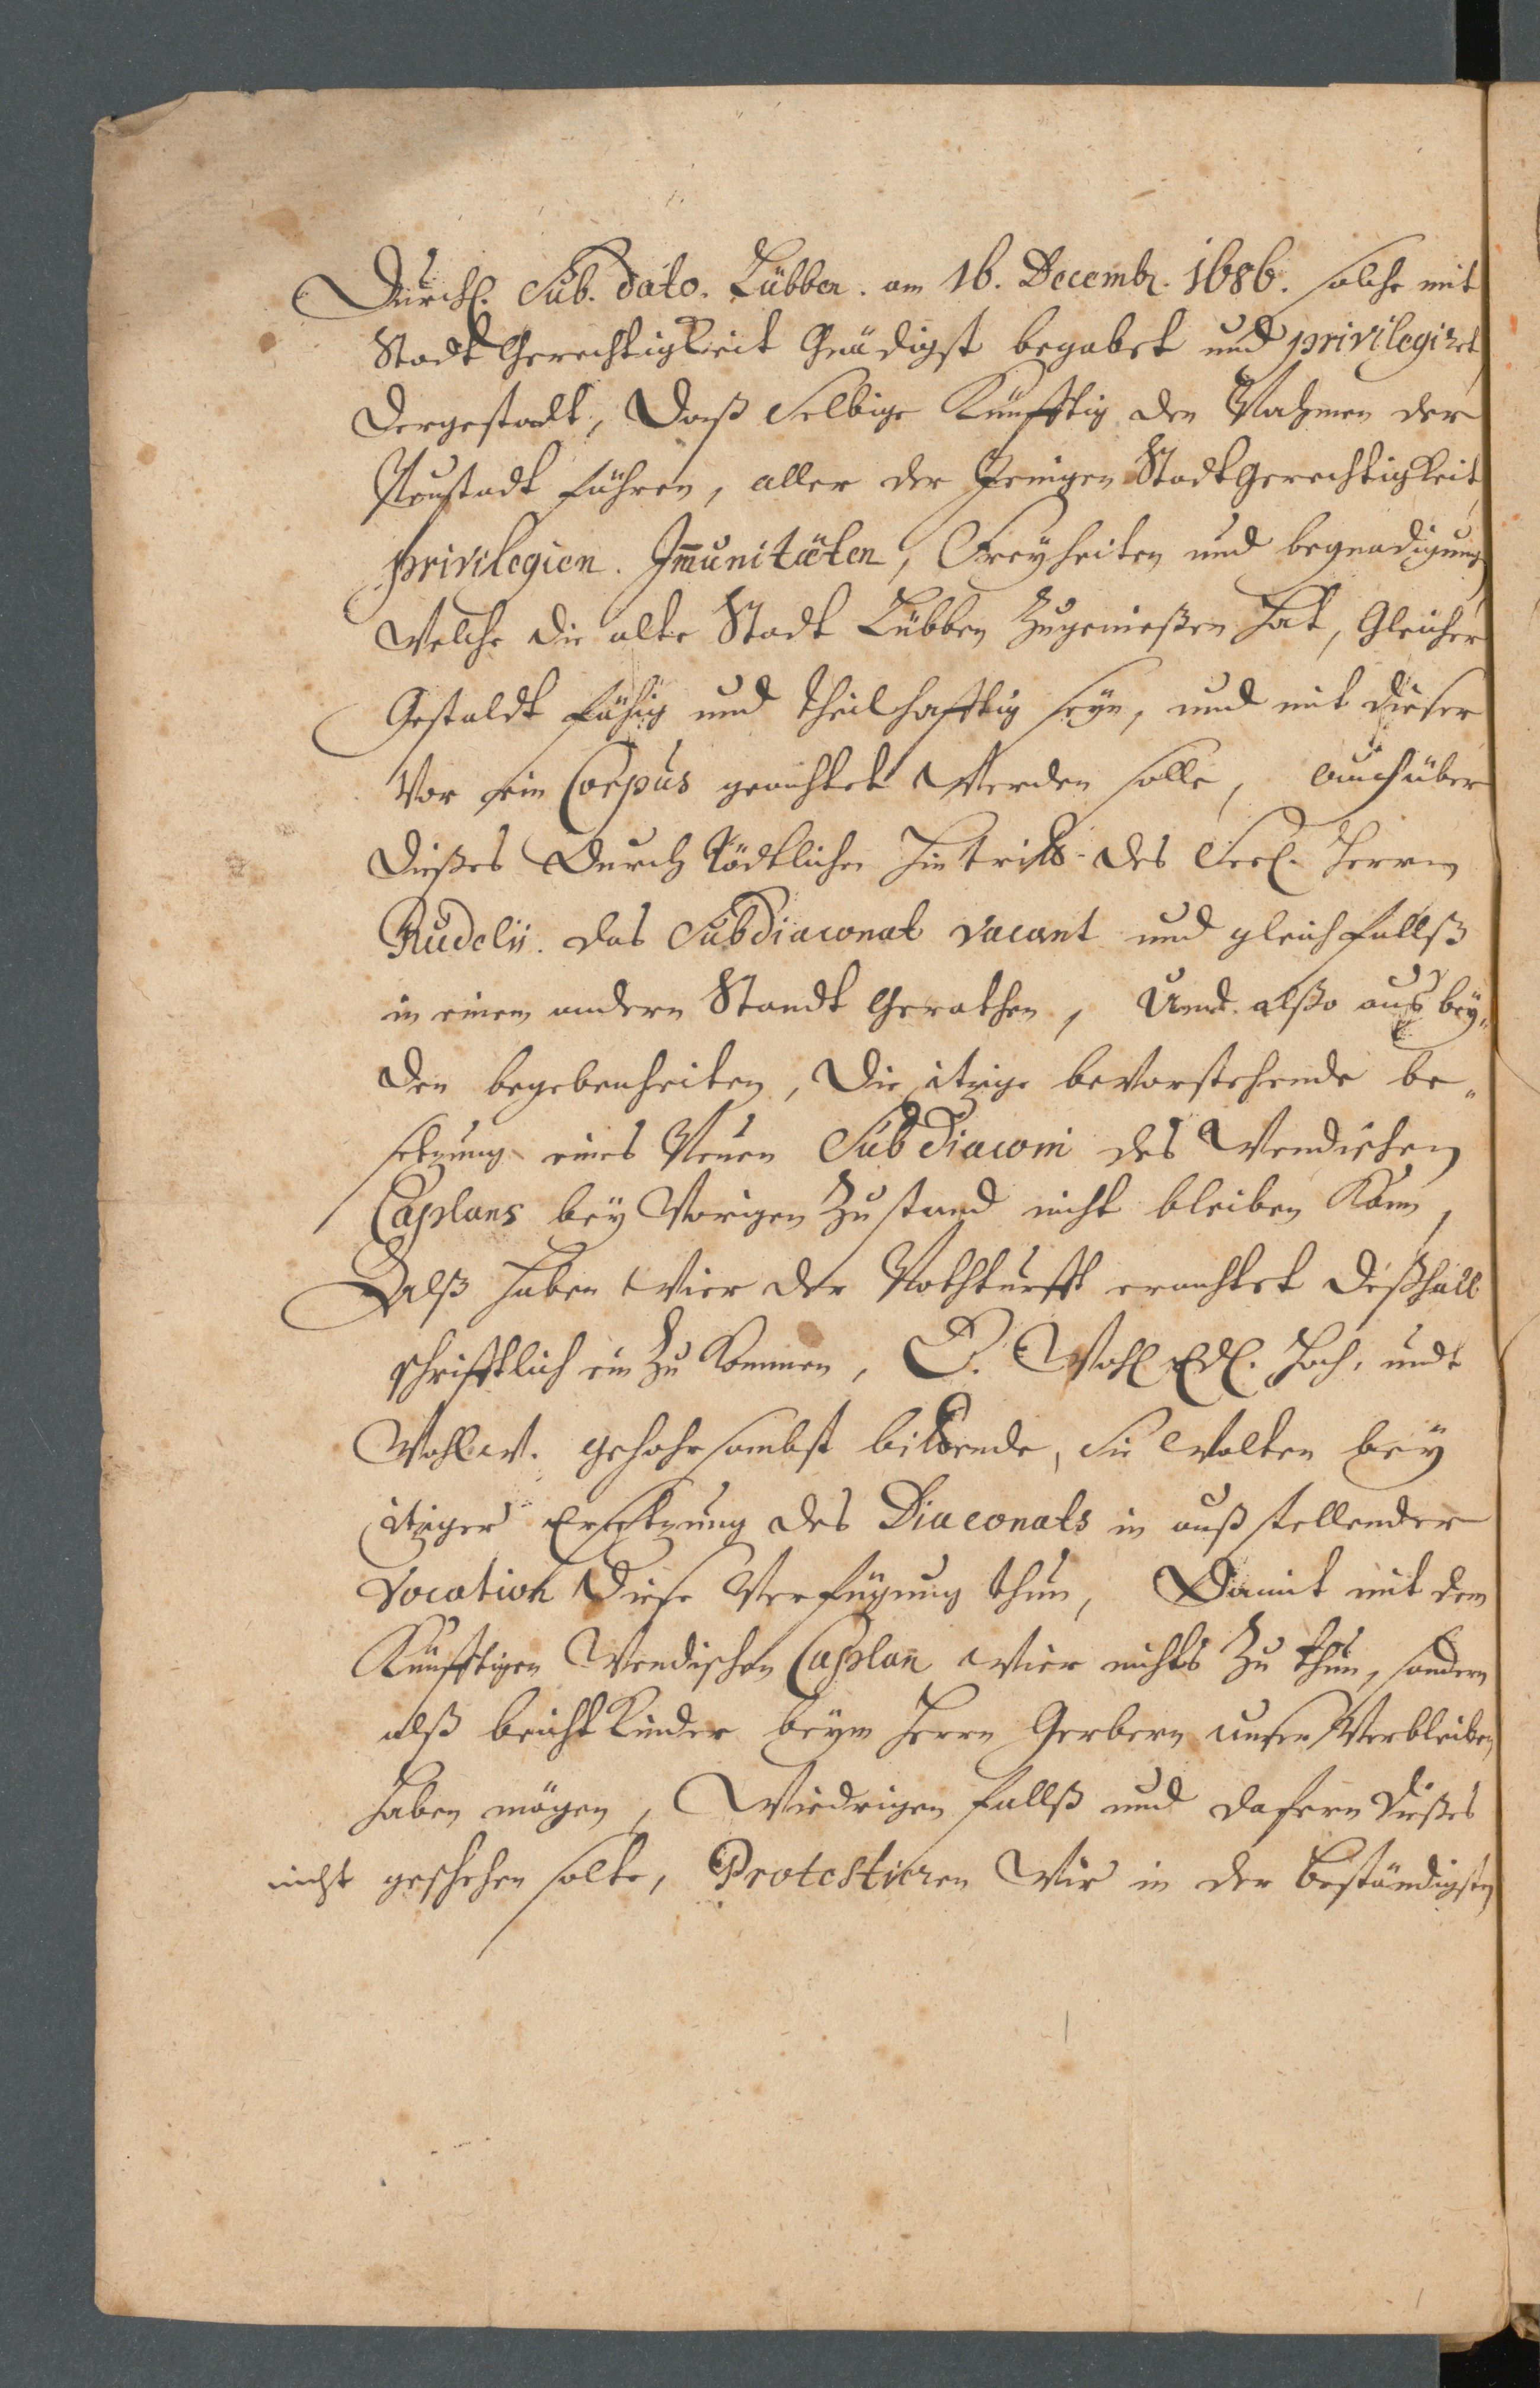 Durchl. Sub. dato. Lübben. am 16. Decembr. 1686. solche mit
Stadt Gerechtigkeit Gnädigst begabet und privilegiret
dergestalt, Daß selbige Künfftig den Nahmen der
Neustadt führen, aller der Jenigen Stadt Gerechtigkeit
privilegien. Im̄unitäten, Freyheiten und begnadigung
Welche die alte Stadt Lübben Zugenießen hat, Gleicher
Gestaldt fähig und theilhafftig seyn, und mit dieser
Vor ein Corpus geachtet Werden solle, auch über
dießes Durch Tödtlichen Hintritt des Seel. Herrn
Rudelii. das Subdiaconat vacant und gleichfallß
in einem andern Standt Gerathen, Und alßo aus bey„
den begebenheiten, Die itzige bevorstehende be„
setzung eines Neuen Sub Diaconi des Wendischen
Caplans bey Vorigen Zustand nicht bleiben Kann,
Alß haben Wier der Nothturfft erachtet dißhalb
schrifftlich ein Zu Kommen, E. Wohl Edl. Hoch, undt
Wohlw. gehohrsambst bittende, Sie Wolten bey
itziger Ersetzung des Diaconats in außstellender
Vocation Diese Verfügung thun, Damit mit dem
Künfftigen Wendischen Caplan Wier nichts Zu thun, sondern
alß beicht Kinder beym Herrn Gerbern unser Verbleiben
haben mögen, Wiedrigen fallß und dafern dießes
nicht geschehen solte, Protestieren Wir in der beständigsten